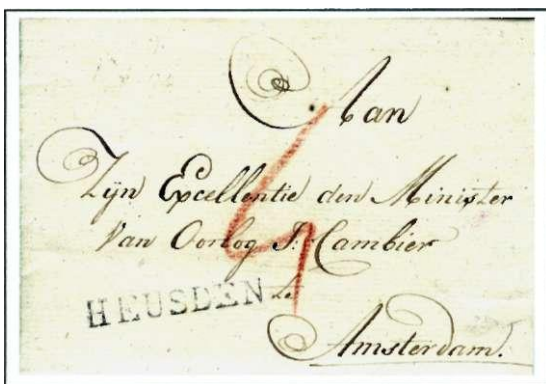 Aan
Zijn Excellentie den Minister
Van Oorlog J: Cambier
HEUSDEN te
Amsterdam.